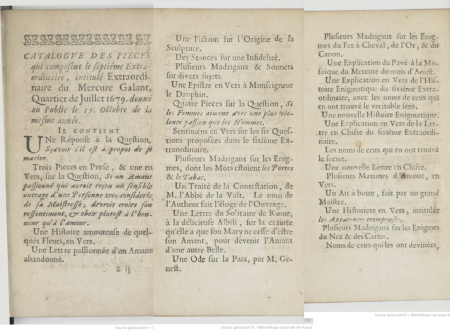 CATALOGUE DES PIECES
qui composent le septiéme Extra-
ordinaire, intitulé Extraordi-
naire du Mercure Galant,
Quartier de Juillet 1679. donné
au Public le 15. Octobre de la
mesme année.
IL CONTIENT
UNe Réponse à la Question,
Sçavoir s'il est à propos de se
marier.
Trois Pieces en Prose, & une en
Vers, sur la Question, Si un Amant
passionné qui auroit reçeu un sensible
outrage d'une Personne tres-considerée
de sa Maistresse, devroit croire son
ressentiment, & obeir plutost à l'hon-
neur qu'à l'amour.
Une Histoire amoureuse de quel-
ques Fleurs, en Vers.
Une Lettre passionnée d'un Amant
abandonné.
Une Fiction sur l'Origine de la
Sculpture.
Des Stances sur une Infidelité.
Plusieurs Madrigaux & Sonnets
sur divers sujets.
Une Epistre en Vers à Monseigneur
le Dauphin.
Quatre Pieces sur la Question, Si
les Femmes aiment avec une plus vio-
lente passion que les Hommes.
Sentimens en Vers sur les six Ques-
tions proposées dans le sixiéme Ex-
traordinaire.
Plusieurs Madrigaux sur les Enig-
mes, dont les Mots estoient les Portes
& le Tabac.
Un Traité de la Contestation, de
M. l'Abbé de la Valt. Le nom de
l'Autheur fait l'éloge de l'Ouvrage.
Une Lettre du Solitaire de Rome,
à la délicieuse Albili, sur la crainte
qu'elle a que son Mary ne cesse d'estre
son Amant, pour devenir l'Amant
d'une autre Belle.
Une Ode sur la Paix, par M. Ge-
nest.
Plusieurs Madrigaux sur les Enig-
mes du Fer à Cheval, de l'Or, & du
Canon.
Une Explication du Pavé à la Mo-
saique du Mercure du mois d'Aoust.
Une Explication en Vers de l'Hi-
stoire Enigmatique du sixiéme Extra-
ordinaire, avec les noms de ceux qui
en ont trouvé le veritable sens.
Une nouvelle Histoire Enigmatique.
Une Explication en Vers de la Let-
tre en Chifre du sixiéme Extraordi-
naire.
Les noms de ceux qui en ont trouvé
le secret.
Une nouvelle Lettre en Chifre.
Plusieurs Maximes d'Amour, en
Vers.
Un Air à boire, fait par un grand
Maistre.
Une Historiete en Vers, intitulée
les Apparences trompeuses.
Plusieurs Madrigaux sur les Enigmes
du Nez & des Cartes.
Noms de ceux qui les ont devinées,